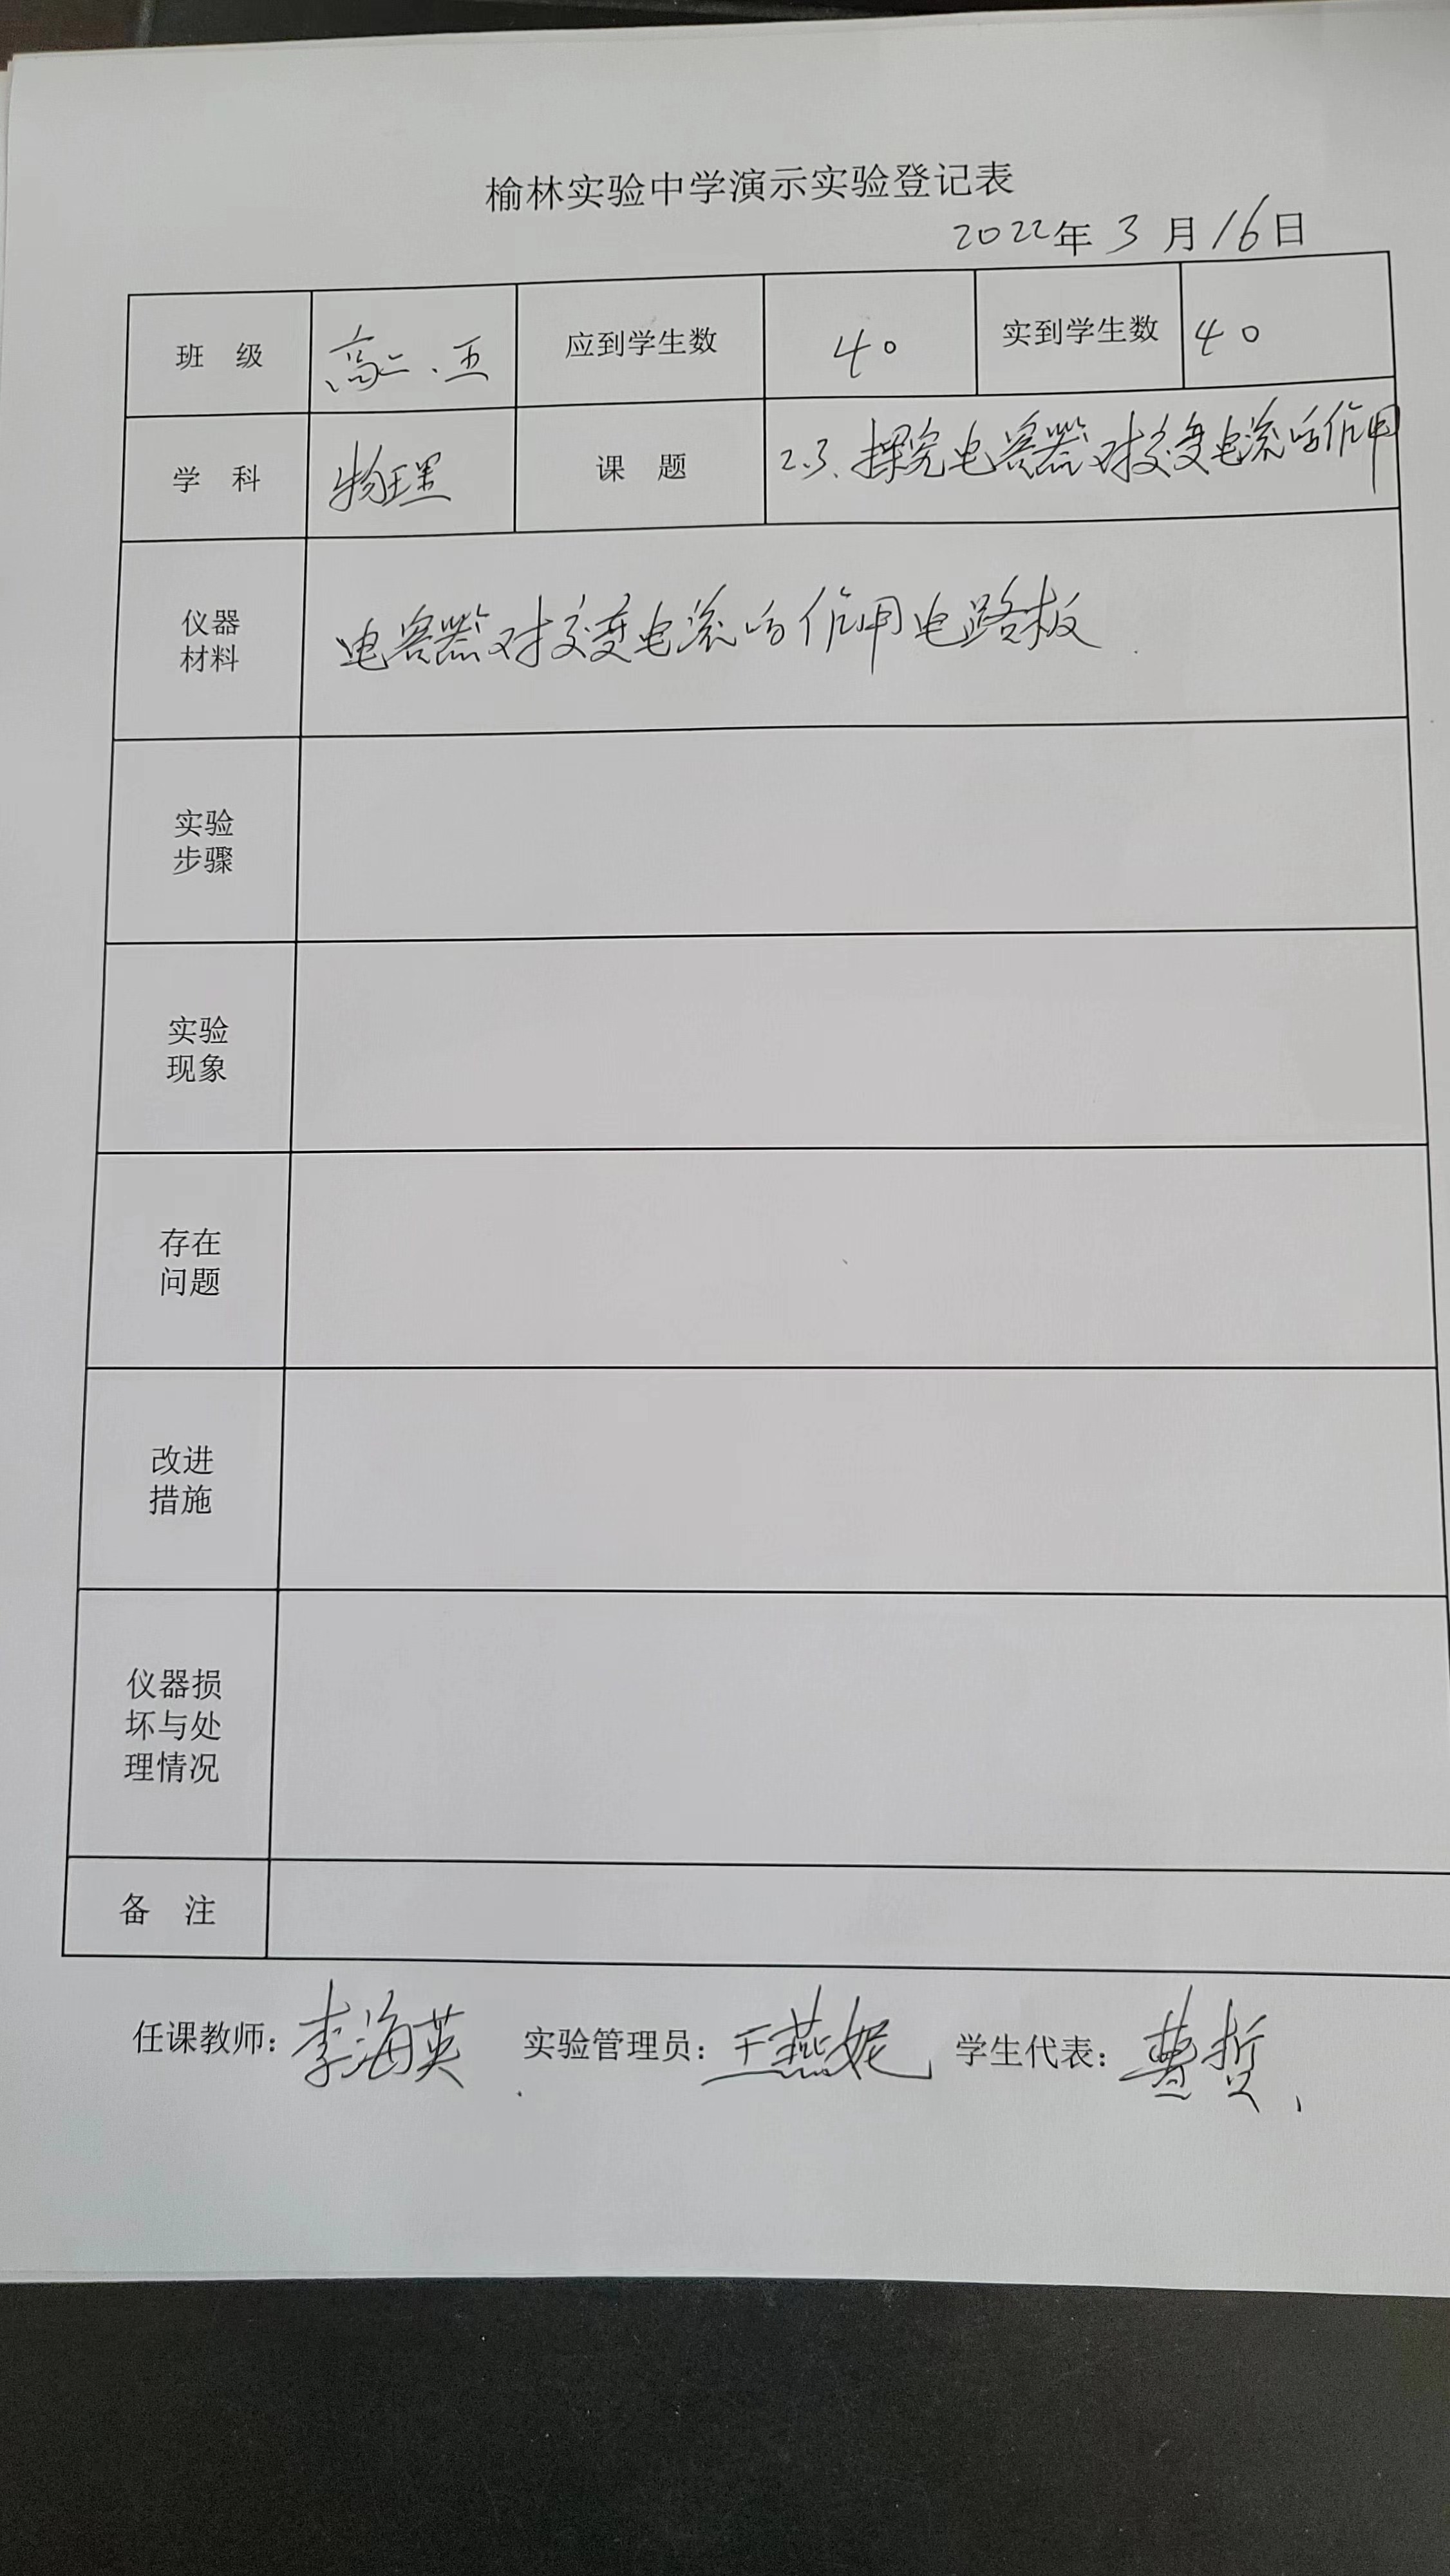 榆林实验中学演示实验登记表
2022年 3 月 16 日
班 级 高二.五 应到学生数 40 实到学生数 40
学 科 物理 课 题 2.3.探究电容器对交变电流的作用
仪器
材料
电容器对交变电流的作用电路板.
实验
步骤
实验
现象
存在
问题
改进
措施
仪器损
坏与处
理情况
备 注
任课教师:李海英 实验管理员:王燕妮 学生代表:曹哲